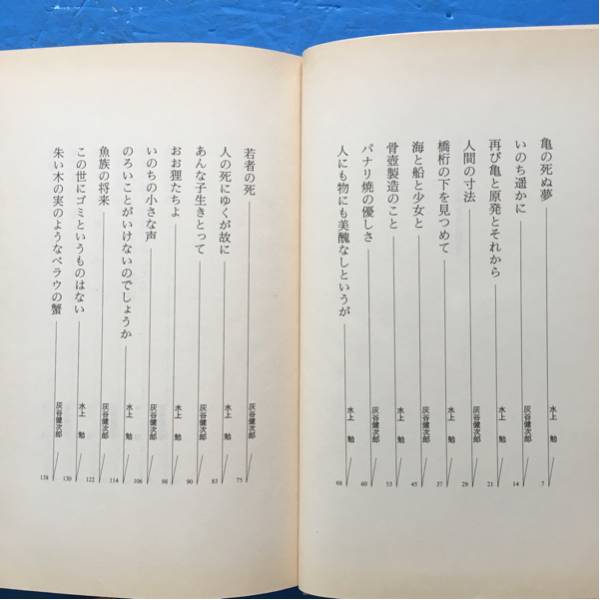 亀の死ぬ夢 水上 勉 7
いのち遥かに 灰谷健次郎 14
再び亀と原発とそれから 水上 勉 21
人間の寸法 灰谷健次郎 29
橋桁の下を見つめて 水上 勉 37
海と船と少女と 灰谷健次郎 45
骨壺製造のこと 水上 勉 53
パナリ焼の優しさ 灰谷健次郎 60
人にも物にも美醜なしというが 水上 勉 68
若者の死 灰谷健次郎 75
人の死にゆくが故に 水上 勉 83
あんな子生きとって 灰谷健次郎 90
おお狸たちよ 水上 勉 98
いのちの小さな声 灰谷健次郎 106
のろいことがいけないのでしょうか 水上 勉 114
魚族の将来 灰谷健次郎 122
この世にゴミというものはない 水上 勉 130
朱い木の実のようなベラウの蟹 灰谷健次郎 138